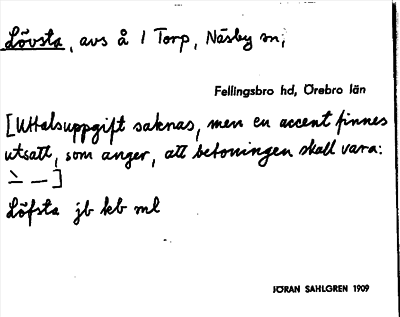 Lövsta, avs å 1 Torp, Näsby sn,
Fellingsbro hd, Örebro län
[Uttalsuppgift saknas, men en accent finnes
utsatt, som anger, att betoningen skall vara:
` –]
Löfsta jb kb ml
JÖRAN SAHLGREN 1909